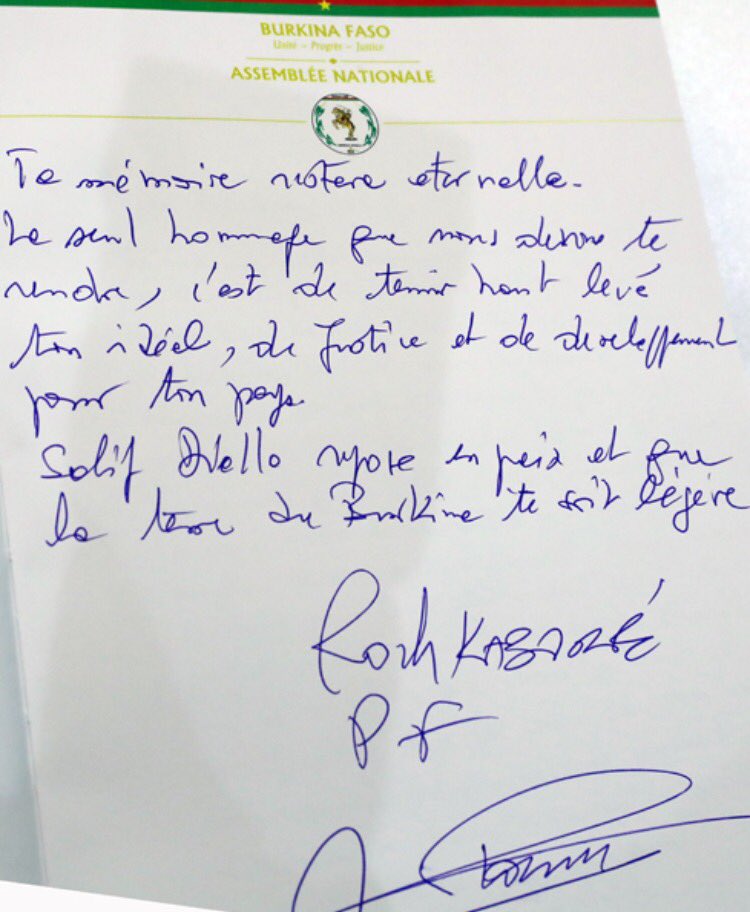 BURKINA FASO
Unité - Progrès - Justice
ASSEMBLÉE NATIONALE
Ta mémoire restera eternelle.
Le seul hommage que nous devons te
rendre, c'est de tenir haut levé
ton idéal, de Justice et de developpement
pour ton pays.
Salif Diallo repose en paix et que
la terre du Burkina te soit légère
Roch KABORÉ
PF